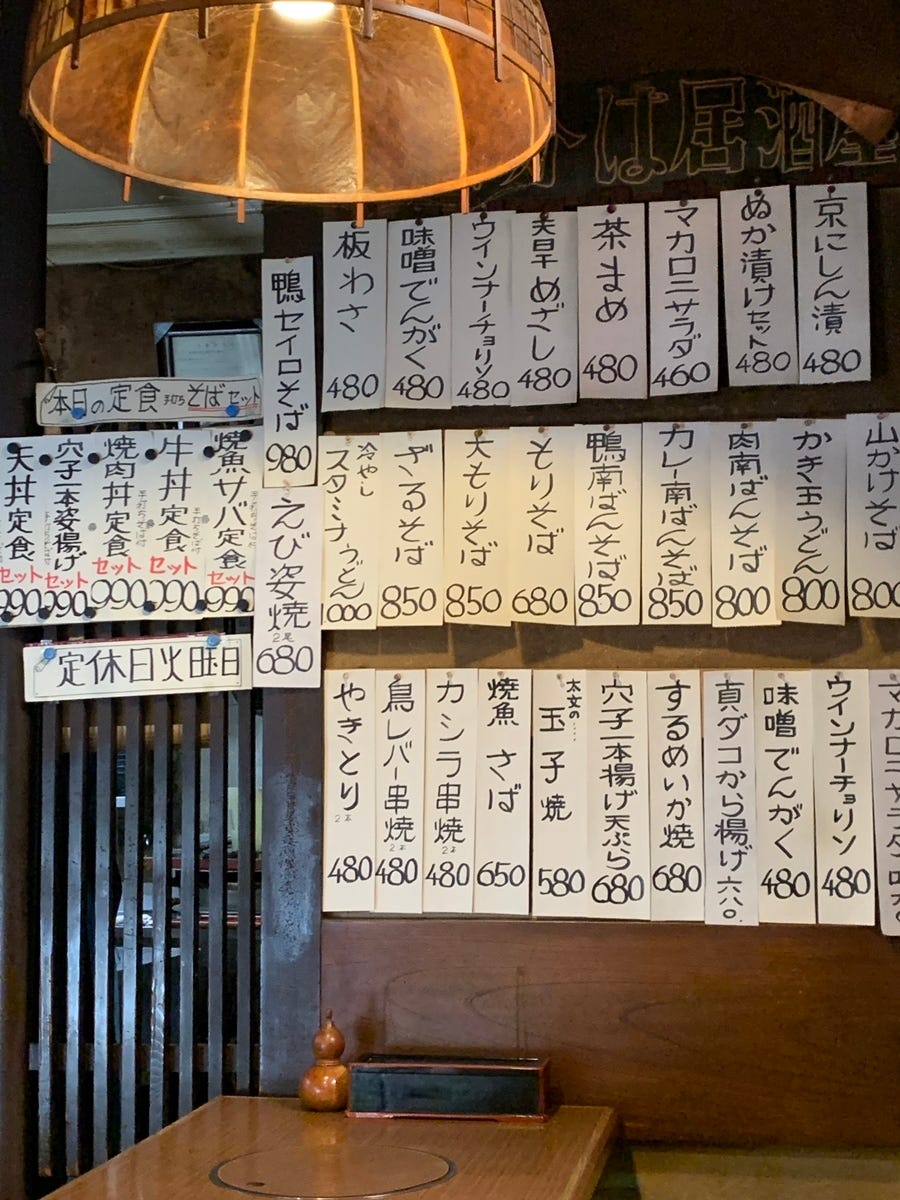 は居酒屋
京にしん漬 480
ぬか漬けセット 480
マカロニサラダ 460
茶まめ 480
天日干めざし 480
ウインナーチョリソ 480
味噌でんがく 480
板わさ 480
鴨セイロそば 980
山かけそば 800
かき玉うどん 800
肉南ばんそば 800
カレー南ばんそば 850
鴨南ばんそば 850
もりそば 680
大もりそば 850
ざるそば 850
冷やしスタミナうどん 1000
えび姿焼 2尾 680
本日の定食 手打ちそばセット
焼魚サバ定食 手打ちそば付 セット 990
牛丼定食 手打ちそば付 セット 990
焼肉丼定食 手打ちそば付 セット 990
穴子一本姿揚げ セット 990
天丼定食 セット 990
定休日火曜日
ウインナーチョリソ 480
味噌でんがく 480
真ダコから揚げ 六八〇
するめいか焼 680
穴子一本揚げ天ぷら 680
玉子焼 580
焼魚 さば 650
カシラ串焼 2本 480
鳥レバー串焼 2本 480
やきとり 2本 480